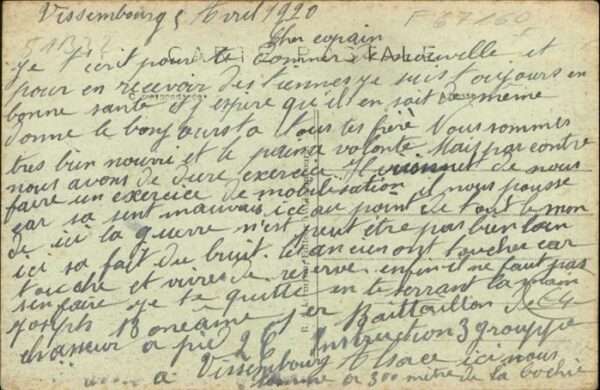 Vissembourg 5 Avril 1920
F 67160
51322
CARTE POSTALE
Cher copain
Je t'ecrit pour te donner nouvelle et
pour en recevoir des tiennes je suis toujours en
bonne santé j'espère qu'il en soit de même
donne le bonjour a tous tes frère Nous sommes
tres bien nourri et le pain a volonté Mais par contre
nous avons de dure exercice de nous
faire un exercice de mobilisation il nous pousse
car sa sent mauvais ici au point de tout le mon
de ici la guerre n'est peut être pas bien loin
ici sa fait du bruit. les ancien ont toucher car
touche et vivre de réserve. enfin il ne faut pas
s'en faire je te quitte en te serrant la main
Joseph Boneâme 1er Battaillon de
chasseur a pied 2 C Instruction 3 grouppe
a Vissembourg Alsace ici nous
somme a 300 mètre de la bochie